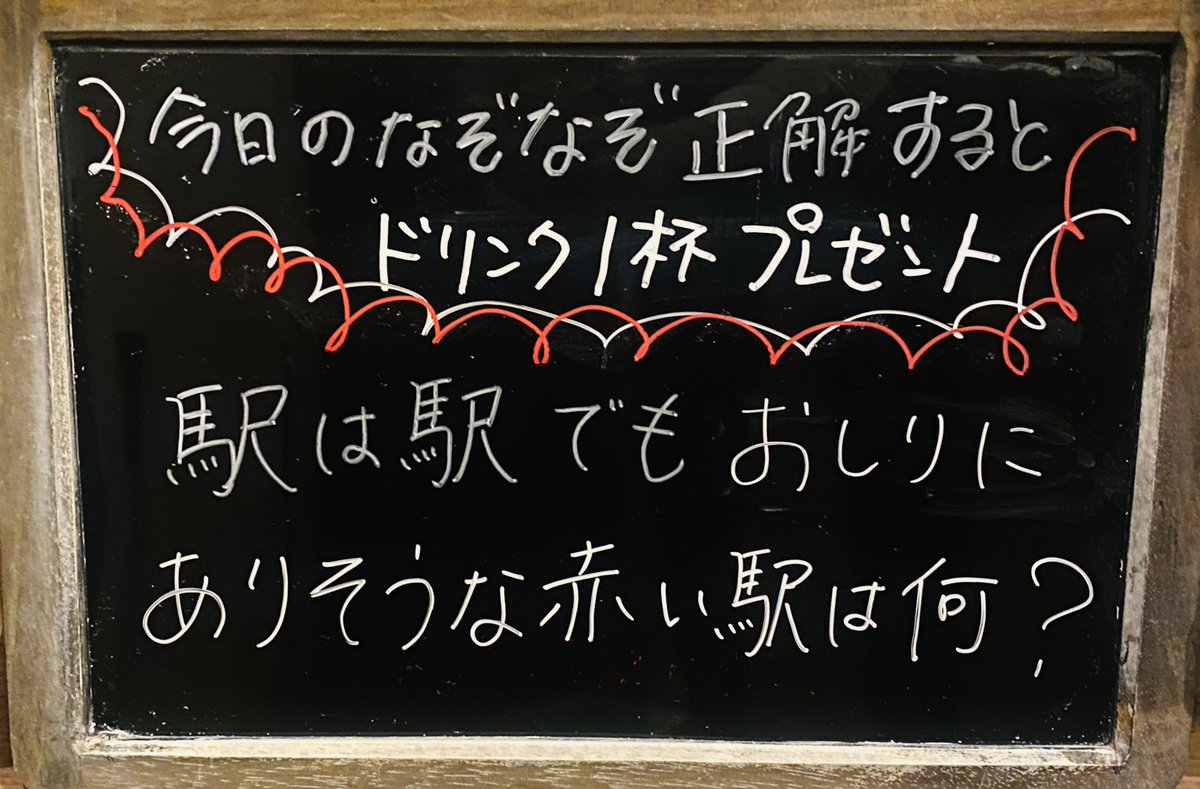 今日のなぞなぞ正解すると
ドリンク1杯プレゼント
駅は駅でもおしりに
ありそうな赤い駅は何?